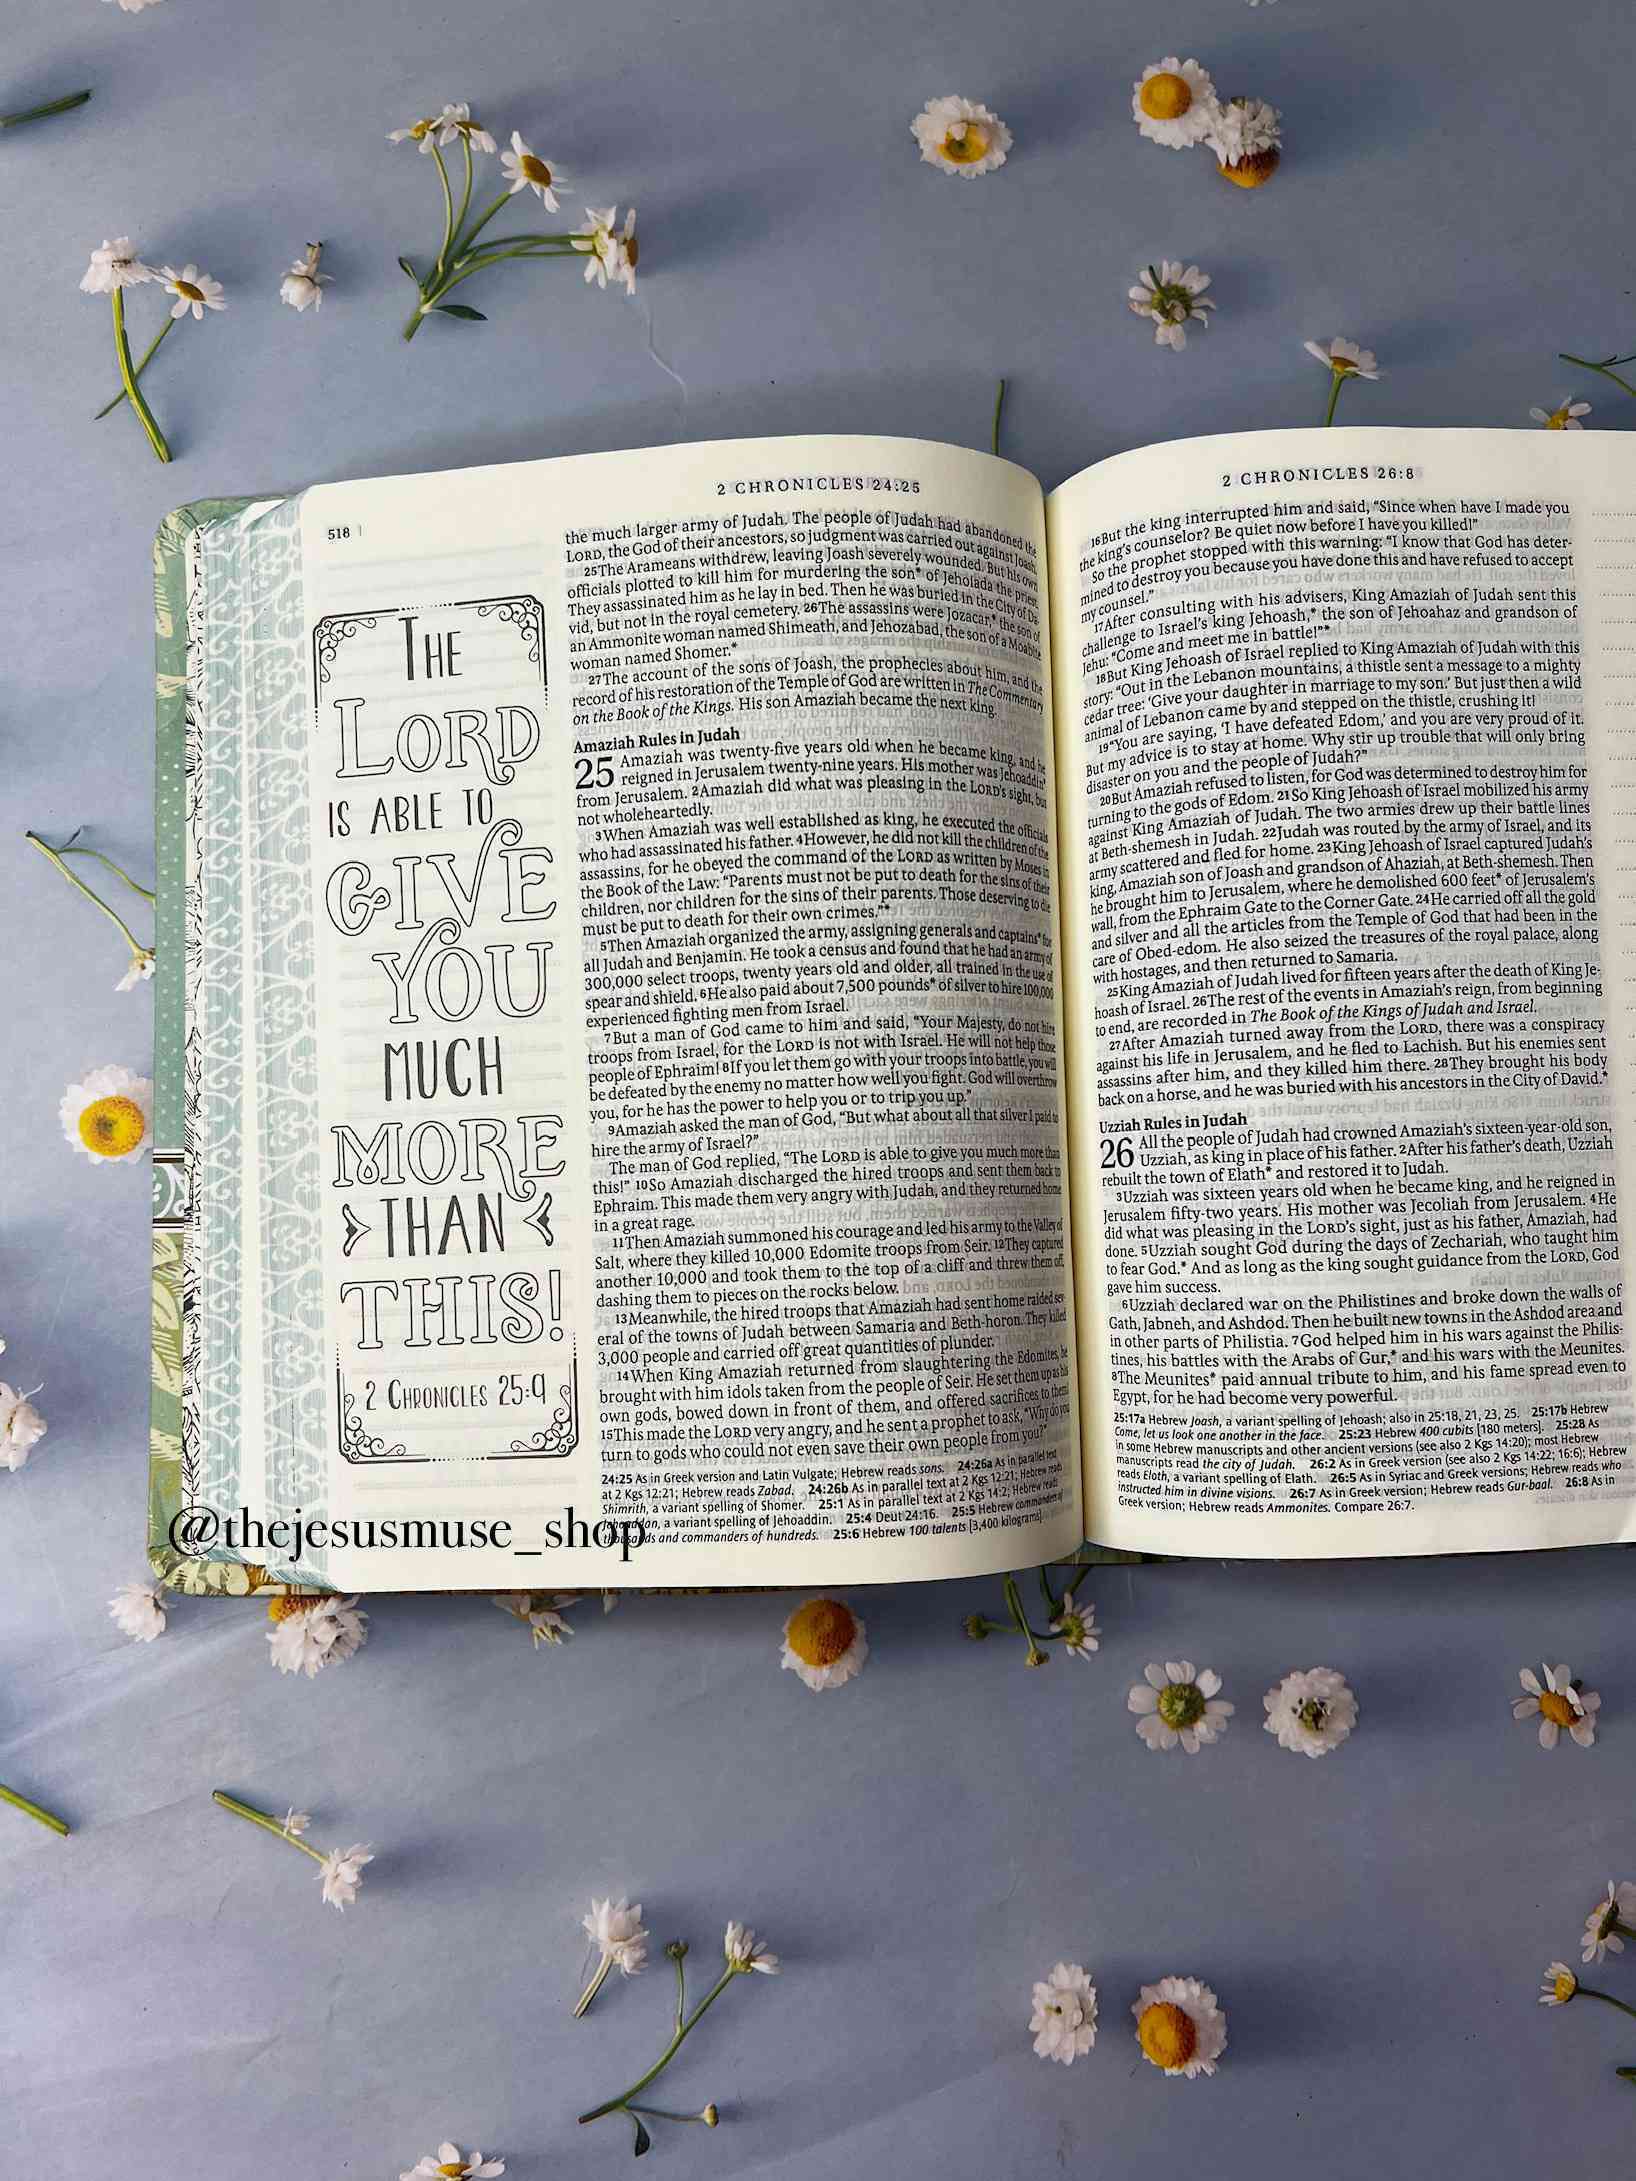 518
THE
LORD
IS ABLE TO
GIVE
YOU
MUCH
MORE
THAN
THIS!
2 CHRONICLES 25:9
2 CHRONICLES 24:25
the much larger army of Judah. The people of Judah had abandoned the
LORD, the God of their ancestors, so judgment was carried out against Joash.
25The Arameans withdrew, leaving Joash severely wounded. But his own
officials plotted to kill him for murdering the son* of Jehoiada the priest.
They assassinated him as he lay in bed. Then he was buried in the City of Da-
vid, but not in the royal cemetery. 26The assassins were Jozacar,* the son of
an Ammonite woman named Shimeath, and Jehozabad, the son of a Moabite
woman named Shomer.*
27The account of the sons of Joash, the prophecies about him, and the
record of his restoration of the Temple of God are written in The Commentary
on the Book of the Kings. His son Amaziah became the next king.
Amaziah Rules in Judah
25 Amaziah was twenty-five years old when he became king, and he
reigned in Jerusalem twenty-nine years. His mother was Jehoaddin*
from Jerusalem. 2Amaziah did what was pleasing in the LORD's sight, but
not wholeheartedly.
3When Amaziah was well established as king, he executed the officials
who had assassinated his father. 4However, he did not kill the children of the
assassins, for he obeyed the command of the LORD as written by Moses in
the Book of the Law: “Parents must not be put to death for the sins of their
children, nor children for the sins of their parents. Those deserving to die
must be put to death for their own crimes.”*
5Then Amaziah organized the army, assigning generals and captains* for
all Judah and Benjamin. He took a census and found that he had an army of
300,000 select troops, twenty years old and older, all trained in the use of
spear and shield. 6He also paid about 7,500 pounds* of silver to hire 100,000
experienced fighting men from Israel.
7But a man of God came to him and said, “Your Majesty, do not hire
troops from Israel, for the LORD is not with Israel. He will not help those
people of Ephraim! 8If you let them go with your troops into battle, you will
be defeated by the enemy no matter how well you fight. God will overthrow
you, for he has the power to help you or to trip you up.”
9Amaziah asked the man of God, “But what about all that silver I paid to
hire the army of Israel?”
The man of God replied, “The LORD is able to give you much more than
this!” 10So Amaziah discharged the hired troops and sent them back to
Ephraim. This made them very angry with Judah, and they returned home
in a great rage.
11Then Amaziah summoned his courage and led his army to the Valley of
Salt, where they killed 10,000 Edomite troops from Seir. 12They captured
another 10,000 and took them to the top of a cliff and threw them off,
dashing them to pieces on the rocks below.
13Meanwhile, the hired troops that Amaziah had sent home raided sev-
eral of the towns of Judah between Samaria and Beth-horon. They killed
3,000 people and carried off great quantities of plunder.
14When King Amaziah returned from slaughtering the Edomites, he
brought with him idols taken from the people of Seir. He set them up as his
own gods, bowed down in front of them, and offered sacrifices to them!
15This made the LORD very angry, and he sent a prophet to ask, “Why do you
turn to gods who could not even save their own people from you?”
24:25 As in Greek version and Latin Vulgate; Hebrew reads sons. 24:26a As in parallel text
at 2 Kgs 12:21; Hebrew reads Zabad. 24:26b As in parallel text at 2 Kgs 12:21; Hebrew reads
Shimrith, a variant spelling of Shomer. 25:1 As in parallel text at 2 Kgs 14:2; Hebrew reads
Jehoaddan, a variant spelling of Jehoaddin. 25:4 Deut 24:16. 25:5 Hebrew commanders of
thousands and commanders of hundreds. 25:6 Hebrew 100 talents [3,400 kilograms].
@thejesusmuse_shop
2 CHRONICLES 26:8
16But the king interrupted him and said, “Since when have I made you
the king's counselor? Be quiet now before I have you killed!”
So the prophet stopped with this warning: “I know that God has deter-
mined to destroy you because you have done this and have refused to accept
my counsel.”
17After consulting with his advisers, King Amaziah of Judah sent this
challenge to Israel's king Jehoash,* the son of Jehoahaz and grandson of
Jehu: “Come and meet me in battle!”*
18But King Jehoash of Israel replied to King Amaziah of Judah with this
story: “Out in the Lebanon mountains, a thistle sent a message to a mighty
cedar tree: ‘Give your daughter in marriage to my son.’ But just then a wild
animal of Lebanon came by and stepped on the thistle, crushing it!
19“You are saying, ‘I have defeated Edom,’ and you are very proud of it.
But my advice is to stay at home. Why stir up trouble that will only bring
disaster on you and the people of Judah?”
20But Amaziah refused to listen, for God was determined to destroy him for
turning to the gods of Edom. 21So King Jehoash of Israel mobilized his army
against King Amaziah of Judah. The two armies drew up their battle lines
at Beth-shemesh in Judah. 22Judah was routed by the army of Israel, and its
army scattered and fled for home. 23King Jehoash of Israel captured Judah's
king, Amaziah son of Joash and grandson of Ahaziah, at Beth-shemesh. Then
he brought him to Jerusalem, where he demolished 600 feet* of Jerusalem's
wall, from the Ephraim Gate to the Corner Gate. 24He carried off all the gold
and silver and all the articles from the Temple of God that had been in the
care of Obed-edom. He also seized the treasures of the royal palace, along
with hostages, and then returned to Samaria.
25King Amaziah of Judah lived for fifteen years after the death of King Je-
hoash of Israel. 26The rest of the events in Amaziah's reign, from beginning
to end, are recorded in The Book of the Kings of Judah and Israel.
27After Amaziah turned away from the LORD, there was a conspiracy
against his life in Jerusalem, and he fled to Lachish. But his enemies sent
assassins after him, and they killed him there. 28They brought his body
back on a horse, and he was buried with his ancestors in the City of David.*
Uzziah Rules in Judah
26 All the people of Judah had crowned Amaziah's sixteen-year-old son,
Uzziah, as king in place of his father. 2After his father's death, Uzziah
rebuilt the town of Elath* and restored it to Judah.
3Uzziah was sixteen years old when he became king, and he reigned in
Jerusalem fifty-two years. His mother was Jecoliah from Jerusalem. 4He
did what was pleasing in the LORD's sight, just as his father, Amaziah, had
done. 5Uzziah sought God during the days of Zechariah, who taught him
to fear God.* And as long as the king sought guidance from the LORD, God
gave him success.
6Uzziah declared war on the Philistines and broke down the walls of
Gath, Jabneh, and Ashdod. Then he built new towns in the Ashdod area and
in other parts of Philistia. 7God helped him in his wars against the Philis-
tines, his battles with the Arabs of Gur,* and his wars with the Meunites.
8The Meunites* paid annual tribute to him, and his fame spread even to
Egypt, for he had become very powerful.
25:17a Hebrew Joash, a variant spelling of Jehoash; also in 25:18, 21, 23, 25. 25:17b Hebrew
Come, let us look one another in the face. 25:23 Hebrew 400 cubits [180 meters]. 25:28 As
in some Hebrew manuscripts and other ancient versions (see also 2 Kgs 14:20); most Hebrew
manuscripts read the city of Judah. 26:2 As in Greek version (see also 2 Kgs 14:22; 16:6); Hebrew
reads Eloth, a variant spelling of Elath. 26:5 As in Syriac and Greek versions; Hebrew reads who
instructed him in divine visions. 26:7 As in Greek version; Hebrew reads Gur-baal. 26:8 As in
Greek version; Hebrew reads Ammonites. Compare 26:7.